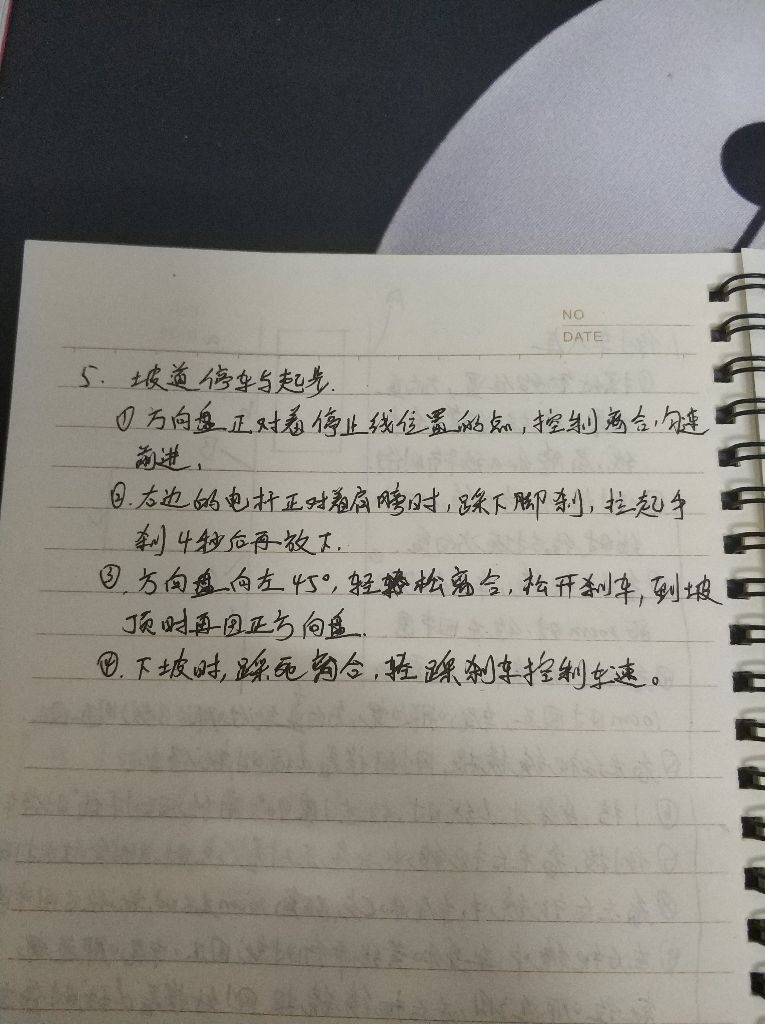 NO
DATE
5. 坡道停车与起步.
① 方向盘正对着停止线位置的点,控制离合,匀速
前进,
②. 右边的电杆正对着肩膀时,踩下脚刹,拉起手
刹4秒后再放下.
③. 方向盘向左45°,轻松离合,松开刹车,到坡
顶时再回正方向盘.
④. 下坡时,踩死离合,轻踩刹车控制车速。